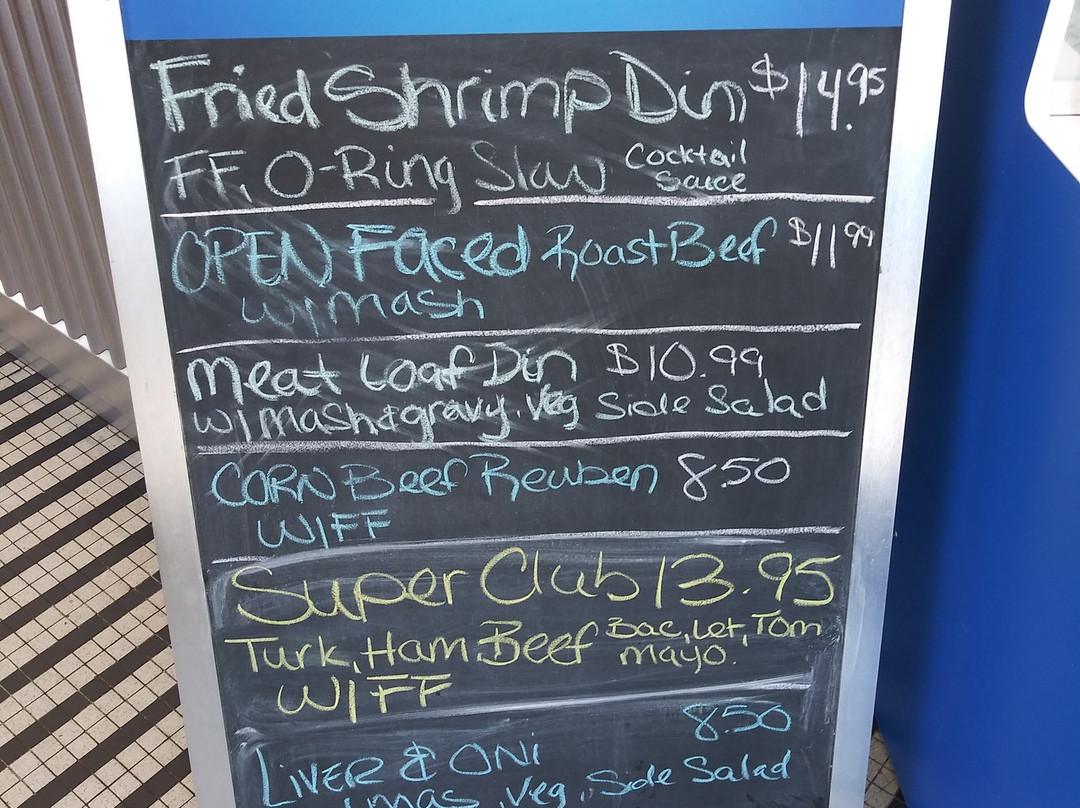 Fried Shrimp Din $14.95
FF, O-Ring Slaw Cocktail Sauce
OPEN FACED Roast Beef $11.99
w/mash
Meat Loaf Din $10.99
w/mash & gravy, Veg Side Salad
CORN Beef Reuben 8.50
W/FF
Super Club 13.95
Turk, Ham, Beef Bac, Let, Tom Mayo.
W/FF
8.50
LIVER & ONI
/mas, Veg, Side Salad